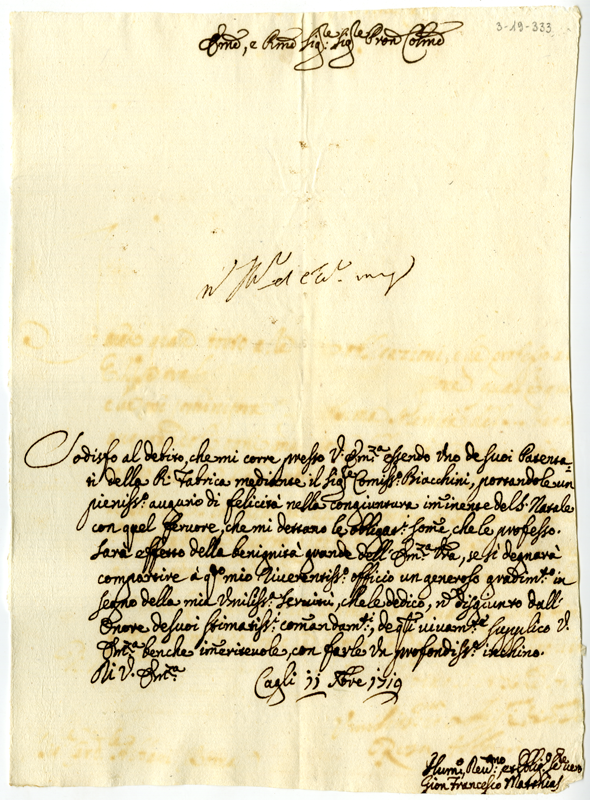 3-19-333
Emo, e Rmo Sigre Sigre Pron Colmo
Sodisfo al debito, che mi corre presso V. Emza essendo uno de suoi Patenta-
ti della R. Fabrica mediante il Sigre Comisso Biacchini, portandole un
pienisso augurio di felicità nella congiuntura iminente del S. Natale
con quel fervore, che mi dettano le obligaz. some, che le professo.
Sarà effetto della benignità grande dell' Emza Vra, se si degnarà
compartire à qto mio riverentisso officio un generoso gradimto in
segno della mia umilissa servitù, che le dedico, nò disgiunto dall'
Onore de suoi stimatissi comandamti, de quli vivamte supplico V.
Emza benche imeritevole, con farle un profondisso inchino.
Di V. Emza
Cagli 11 Xbre 1719
Humo, Devmo, et Obligo Servre
Gion Francesco Matthias